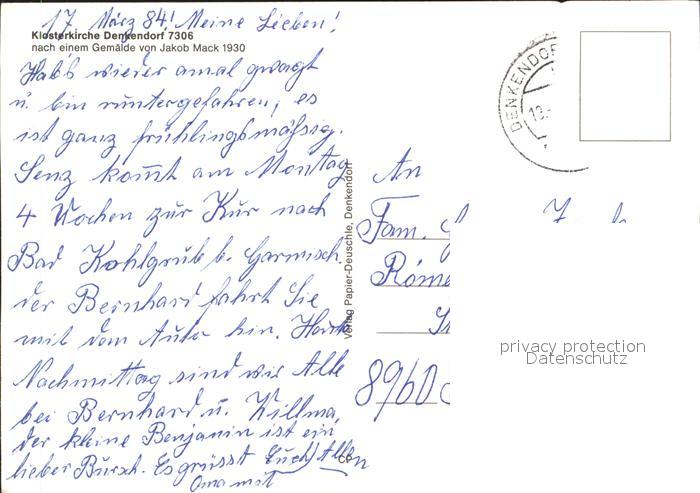 17 März 84! Meine Lieben!
Klosterkirche Denkendorf 7306
nach einem Gemälde von Jakob Mack 1930
Hab's wieder amal gewagt
u. bin runtergefahren, es
ist ganz frühlingsmässig.
Senz kommt am Montag
4 Wochen zur Kur nach
Bad Kohlgrub b. Garmisch.
der Bernhard fährt Sie
mit dem Auto hin. Heute
Nachmittag sind wir Alle
bei Bernhard u. Willma,
der kleine Benjamin ist ein
lieber Bursch. Es grüsst Euch Allen
Oma mit
Verlag Papier-Deuschle, Denkendorf
DENKENDORF
An
Fam.
8960
privacy protection
Datenschutz